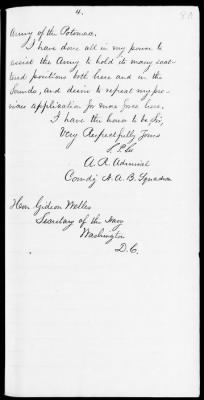 4.
Army of the Potomac.
I have done all in my power to
assist the Army to hold its many scat-
tered positions both here and in the
Sounds, and desire to repeat my pre-
vious application for more force here.
I have the honor to be, Sir,
Very Respectfully Yours
S. P. Lee
A. R. Admiral
Comdg N. A. B. Squadron
Hon. Gideon Welles
Secretary of the Navy
Washington
D. C.